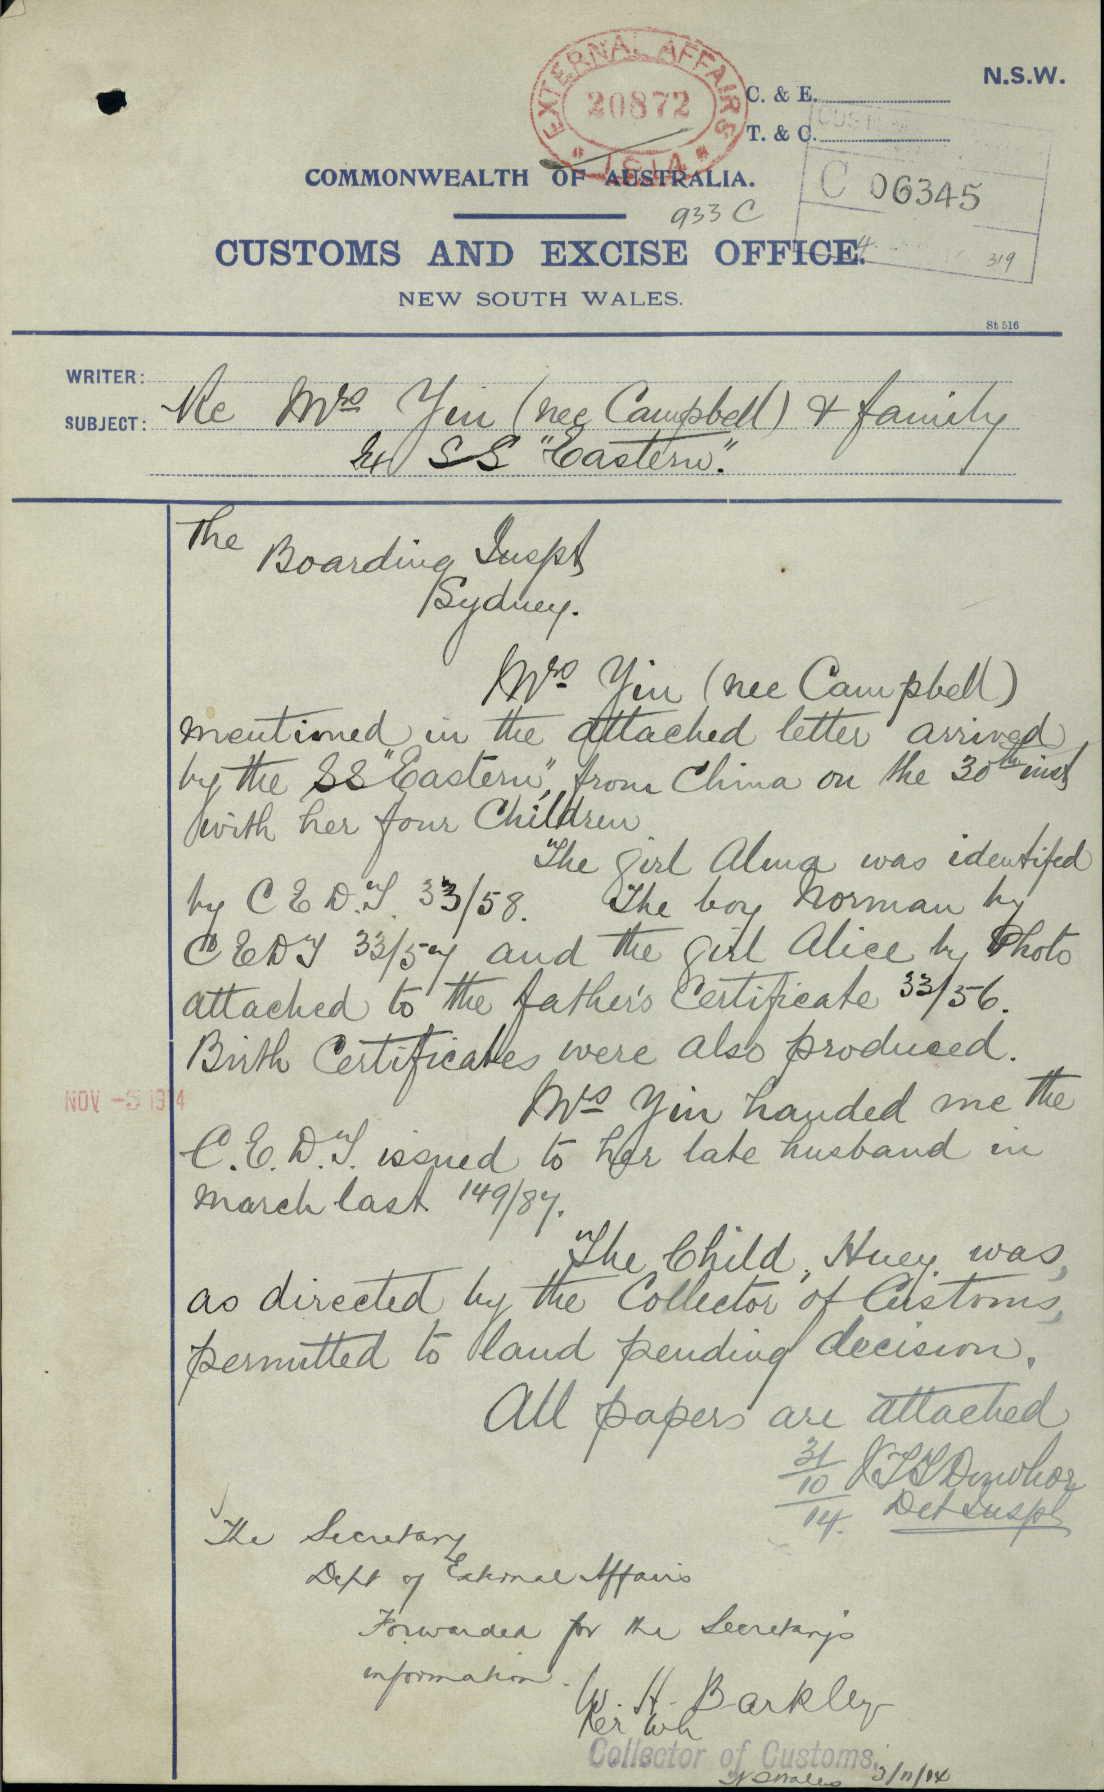 N.S.W.
EXTERNAL AFFAIRS
20872
1914
C. & E.
T. & C.
C 06345
319
COMMONWEALTH OF AUSTRALIA.
933 C
CUSTOMS AND EXCISE OFFICE.
NEW SOUTH WALES.
St 516
WRITER:
SUBJECT: Re Mrs Yin (nee Campbell) & family
Ex SS "Eastern".
The
Boarding Inspt
Sydney.
Mrs Yin (nee Campbell)
mentioned in the attached letter arrived
by the SS "Eastern", from China on the 30th inst
with her four Children
The girl Alma was identifed
by C E D. T. 33/58. The boy Norman by
C E D T 33/57 and the girl Alice by Photo
attached to the father's Certificate 33/56.
Birth Certificates were also produced.
NOV -3 1914
Mrs Yin handed me the
C. E. D. T. issued to her late husband in
March last 149/87.
The Child, Huey, was,
as directed by the Collector of Customs,
permitted to land pending decision.
All papers are attached
31/10/14.
Det Inspt
The Secretary
Dept of External Affairs
Forwarded for the Secretary's
information.
W. H. Barkley
Collector of Customs.
N S Wales 3/11/14